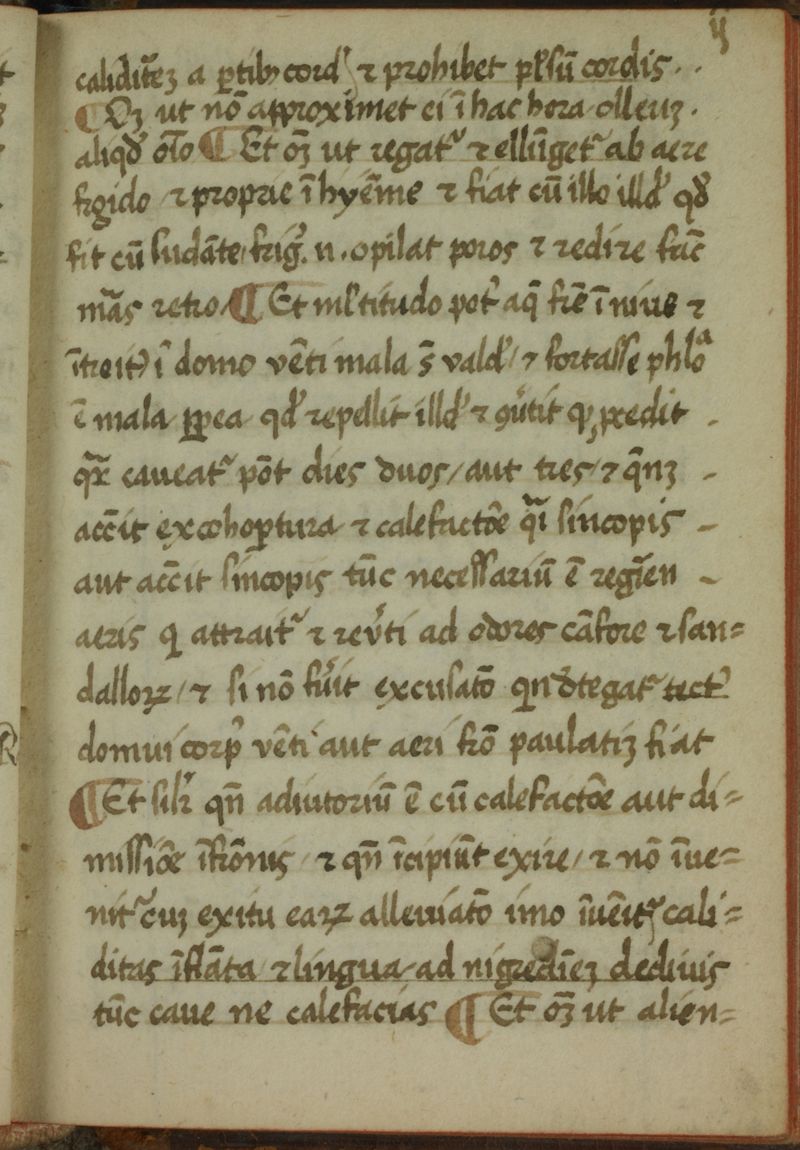 ij
caliditẽꝫ a ꝑtibꝫ cord̛ ⁊ prohibet pꝉsũ cordis . .
¶ Oꝫ ut nõ approximet ei ĩ hac hora olleuꝫ .
aliqd̛ oĩo ¶ Et oꝫ ut regatᷣ ⁊ ellũgetᷣ ab aere
frigido ⁊ proprie ĩ hyẽme ⁊ fiat cũ illo illd̛ qd̛
fit cũ sudãte frig̛. n. opilat poros ⁊ redire fac̃
mãs retro ¶ Et mꝉtitudo pot᷑ aq̃ frẽ ĩ niue ⁊
ĩtroit᷑ ĩ domo vẽti mala s̃ vald̛ / ⁊ fortasse phꝉõ
ẽ mala ꝓpea qd̛ repellit illd̛ ⁊ ꝯũtit qꝫ predit .
qr̃ caueatᷣ põt dies duos / aut tres / ⁊ qñꝫ .
accit̃ ex cohoꝑtura ⁊ calefactõe qĩ sincopis
aut accit̃ sincopis tũc necessariũ ẽ regĩen
aeris qi attraitᷣ ⁊ reũti ad odores cãfore ⁊ san=
dalloꝝ / ⁊ si nõ fũit excusatõ qin dtegatᷣ tect᷑
domui corp᷑ vẽti aut aeri frõ paulatiꝫ fiat
¶ Et silr̃ qñ adiutoriũ ẽ cũ calefactõe aut di=
missiõe ĩfrõnis / ⁊ qñ ĩcipiũt exire / ⁊ nõ ĩue=
nitᷣ cuꝫ exitu eaꝝ alleuiatõ imo ĩuẽitᷣ cali=
ditas ĩflãta ⁊ lingua ad nigredĩeꝫ decliuis
tũc caue ne calefacias ¶ Et oꝫ ut alien=